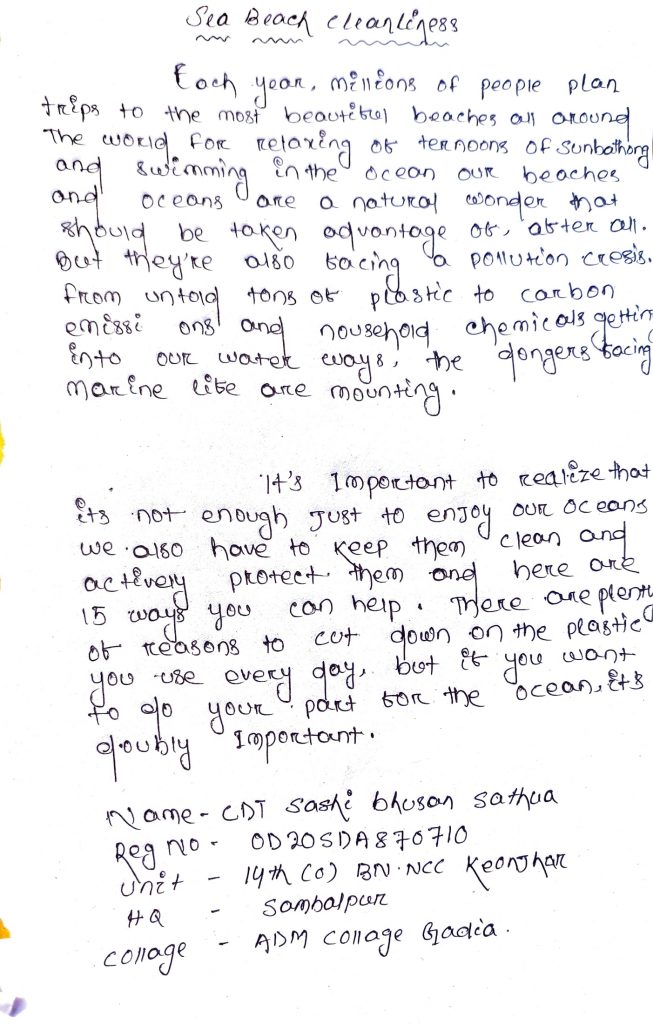 Sea Beach Cleanliness
Each year, millions of people plan
trips to the most beautiful beaches all around
The world for relaxing of ternoons of Sunbathong
and swimming in the ocean our beaches
and oceans are a natural wonder that
should be taken advantage of, after all.
But they're also facing a pollution cresis.
from untold tons of plastic to carbon
emissi ons and nousehold chemicals gettin
into our water ways, the dongers facing
marine life are mounting.
It's Important to realize that
its not enough Just to enjoy our oceans
we also have to keep them clean and
actively protect them and here are
15 ways you can help. There are plent
of reasons to cut down on the plastic
you use every day, but if you want
to do your part for the ocean, its
doubly Important.
Name - CDT Sashi bhusan sathua
Reg No - OD20SDA870710
unit - 14th (O) BN.NCC Keonjhar
HQ - Sambalpur
collage - ADM collage Gadia.